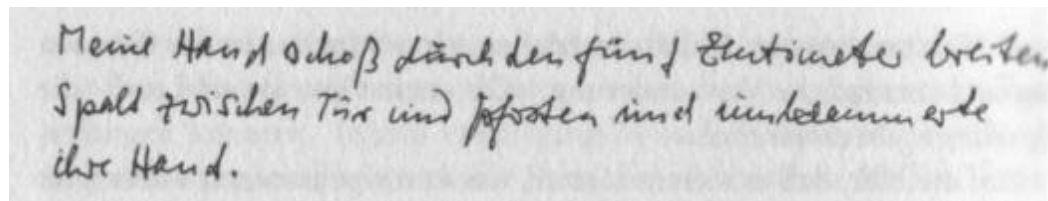 Meine Hand schoß durch den fünf Zentimeter breiten
Spalt zwischen Tür und Pfosten und umklammerte
ihre Hand.